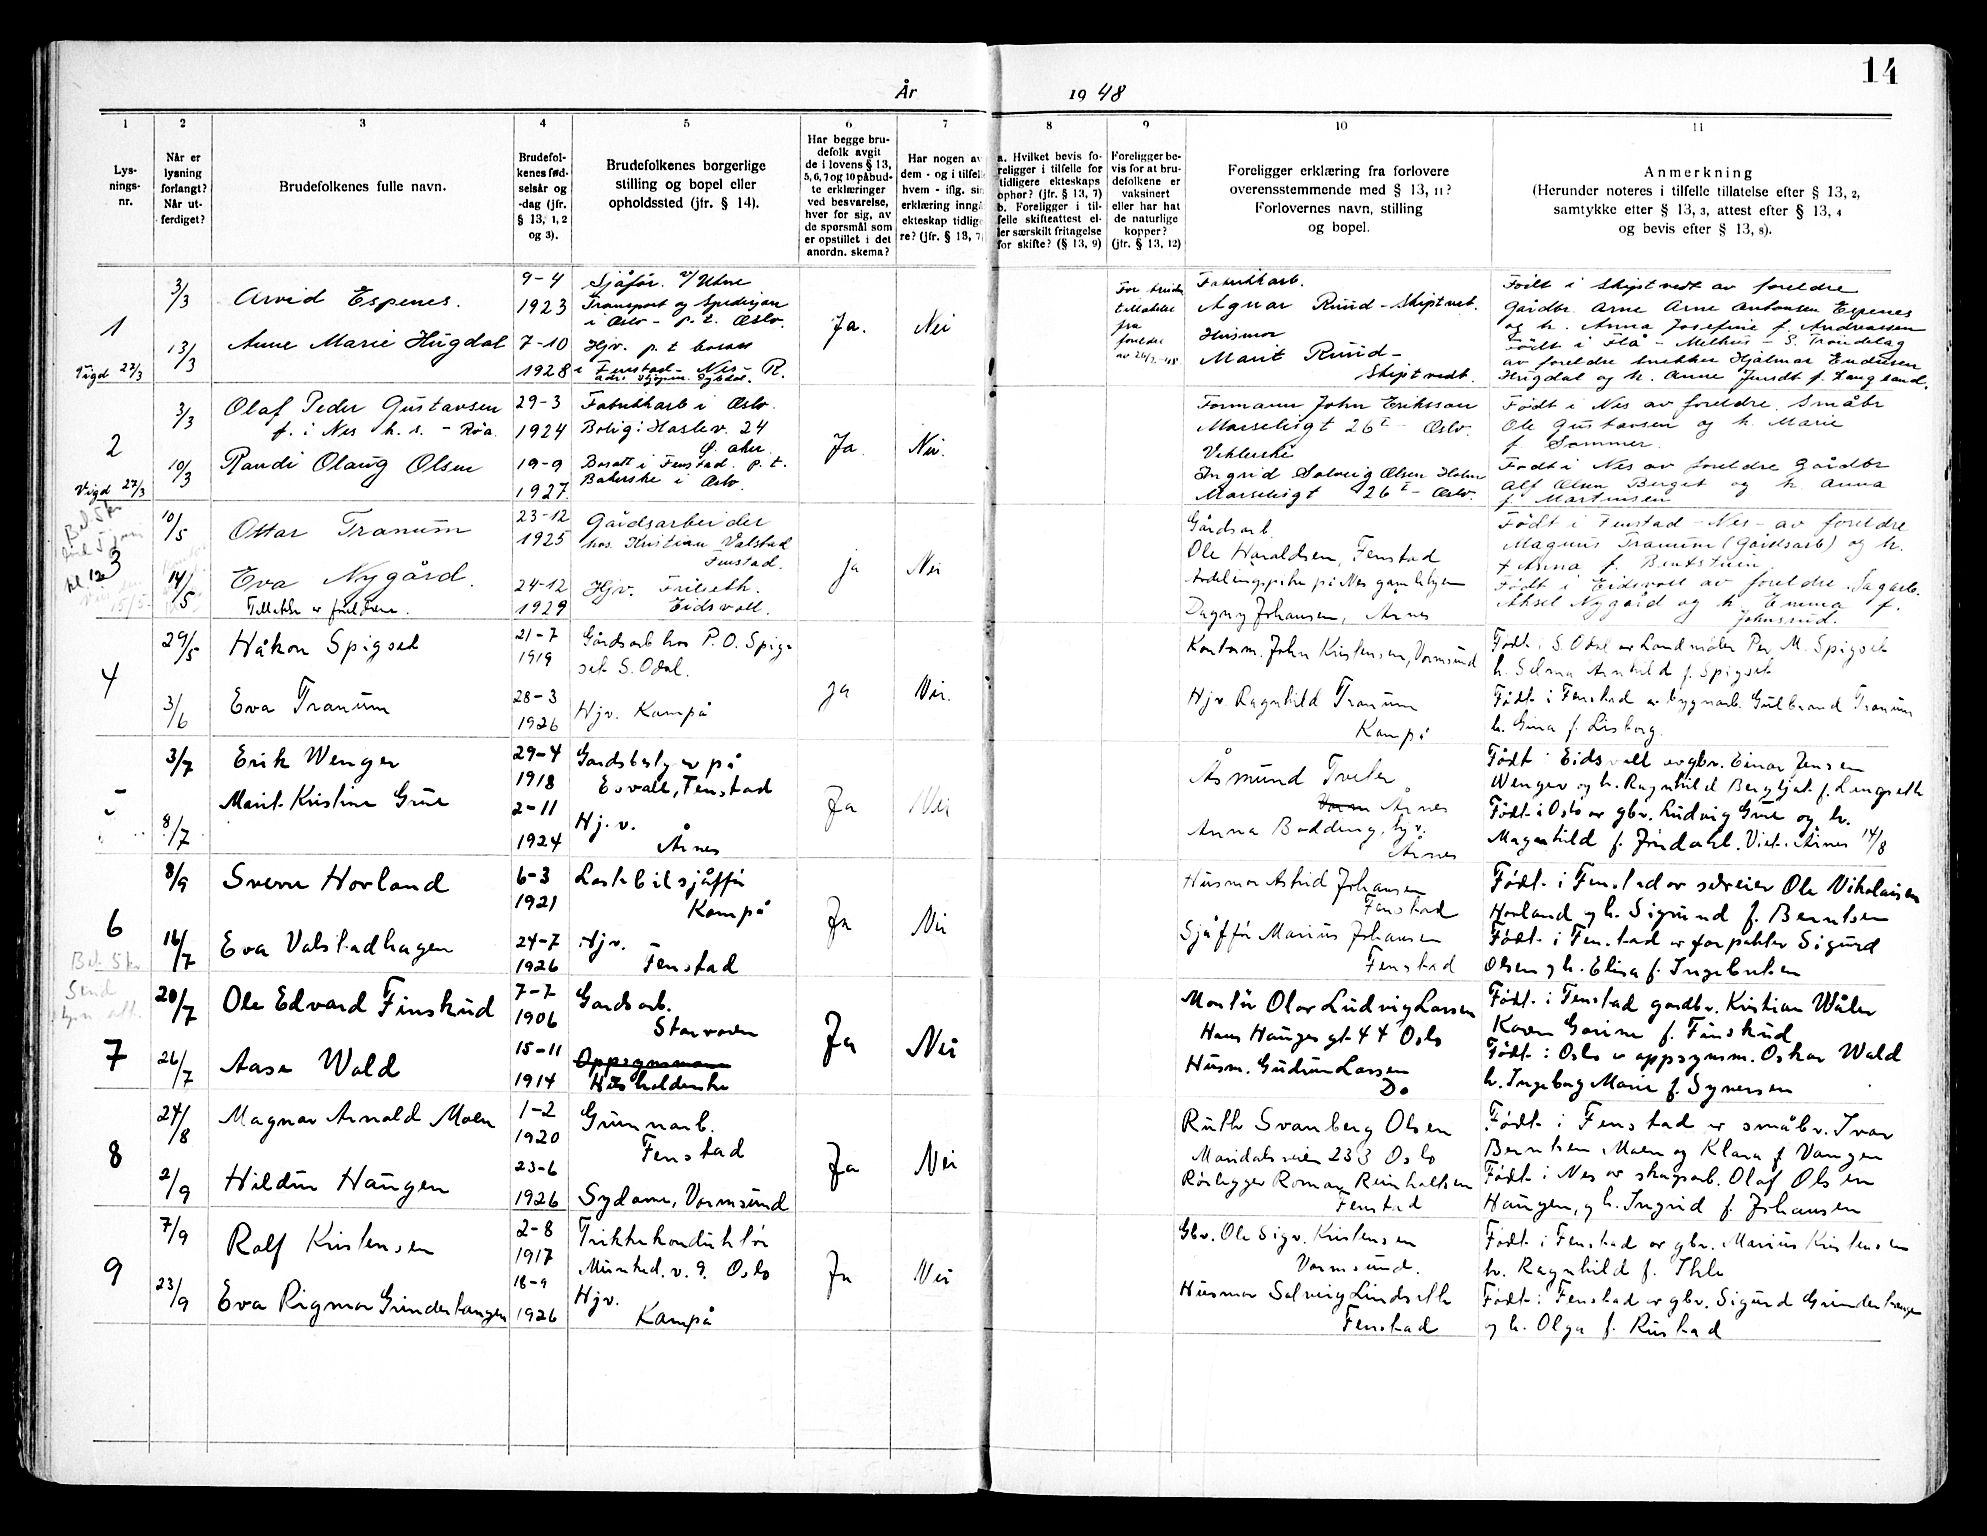 14
År 1948
1 2 3 4 5 6 7 8 9 10 11
Lysnings-nr.
Når er lysning forlangt? Når utferdiget?
Brudefolkenes fulle navn.
Brudefolkenes fødselsår og -dag (jfr. § 13, 1, 2 og 3).
Brudefolkenes borgerlige stilling og bopel eller opholdssted (jfr. § 14).
Har begge brudefolk avgit de i lovens § 13, 5, 6, 7 og 10 påbudte erklæringer ved besvarelse, hver for sig, av de spørsmål som er opstillet i det anordn. skema?
Har nogen av dem - og i tilfelle hvem - iflg. sin erklæring inngå ekteskap tidligere? (jfr. § 13, 7)
a. Hvilket bevis foreligger i tilfelle for tidligere ekteskaps ophør? (jfr. § 13, 7)
b. Foreligger i tilfelle skifteattest eller særskilt fritagelse for skifte? (§ 13, 9)
Foreligger bevis for at brudefolkene er vaksinert eller har hat de naturlige kopper? (jfr. § 13, 12)
Foreligger erklæring fra forlovere overensstemmende med § 13, 11? Forlovernes navn, stilling og bopel.
Anmerkning
(Herunder noteres i tilfelle tillatelse efter § 13, 2, samtykke efter § 13, 3, attest efter § 13, 4 og bevis efter § 13, 8).
1
Vigd 27/3
3/3
13/3
Arvid Espenes.
Anne Marie Hugdal
9-4
1923
7-10
1928
Sjåfør. v/ Utne
Transport og Spedisjon
i Oslo - p.t. Oslo.
Hjv. p.t. bosatt
i Fenstad - Nes - R.
Ja.
Nei
fra
foreldre
Fabrikkarb.
Agnar Ruud - Skiptvet.
Husmor
Marit Ruud -
Skiptvedt.
Født i Skiptvedt av foreldre
Gårdbr. Arne Arne Antonsen Espenes
og h. Anna Josefine f. Andreassen
Født i Flå - Melhus - S. Trøndelag
av foreldre snekker Hjalmar Endresen
Hugdal og h. Anne f. Haugland.
2
Vigd 27/3
3/3
10/3
Olaf Peder Gustavsen
f. i Nes h. s. - Røa
Randi Olaug Olsen
29-3
1924
19-9
1927
Fabrikkarb i Oslo.
Bolig: Haslev. 24
Ø. aker.
Bosatt i Fenstad. p.t.
Bakerske i Oslo.
Ja
Nei.
Formann John Eriksson
Marseligt 26 - Oslo.
Ingrid Solveig Olsen Holm
Marseligt 26 - Oslo.
Født i Nes av foreldre. Småbr
Ole Gustavsen og h. Marie
f. Sommer.
Født i Nes av foreldre Gårdbr
Alf Olsen Berget og h. Anna
f. Martinsen
3
kl 12
10/5
14/5
Ottar Tranum
Eva Nygård.
23-12
1925
24-12
1929
Gårdsarbeider
hos Kristian Valstad
Fenstad.
Hjv. Frilseth.
Eidsvoll.
ja
Nei
Gårdsarb
Ole Haraldsen, Fenstad
Dagny Johansen, Årnes
Født i Fenstad - Nes - av foreldre
Magnus Tranum (Gårdsarb) og h.
Anna f.
Født i Eidsvoll av foreldre. Sagarb.
Aksel Nygård og h. Emma f.
Johnsrud.
4
29/5
3/6
Håkon Spigset
Eva Tranum
21-7
1919
28-3
1926
Gårdsarb hos P.O. Spig-
set S. Odal.
Hjv. Kampå
ja
Nei.
Kontorm. John Kristensen, Vormsund
Hjv Ragnhild Tranum
Kampå
Født i S. Odal av Landmåler Per M. Spigset
h. Selma f. Spigset
Født i Fenstad av bygnarb. Gulbrand Tranum
h. Gina f. Lisborg.
5
3/7
8/7
Erik Wenger
Marit Kristine Grue
29-4
1918
2-11
1924
Gårdsbestyrer på
Esvall, Fenstad
Hj.v.
Årnes
Ja
Nei
Åsmund Tveter
Årnes
Anna Bodding, hjv.
Årnes
Født i Eidsvoll av gbr. Einar Jensen
Wenger og h. Ragnhild Bergljot f. Lengseth
Født i Oslo av gbr. Ludvig Grue og h.
Magnhild f. Jøndahl. Viet i Årnes 14/8
6
8/9
16/7
Sverre Horland
Eva Valstadhagen
6-3
1921
24-7
1926
Lastebilsjåfør
Kampå
Hjv.
Fenstad
Ja
Nei
Husmor Astrid Johansen
Fenstad
Sjåffør Marius Johansen
Fenstad
Født i Fenstad av selveier Ole Nikolaisen
Horland og h. Sigrund f. Berntsen
Født i Fenstad av forpakter Sigurd
Olsen og h. Elisa f. Ingebretsen
7
Bet. 5 kr
Send
20/7
26/7
Ole Edvard Finskud
Aase Wold
7-7
1906
15-11
1914
Gårdsarb.
Storvoren
Oppsynsmann
Husholderske
Ja
Nei
Montør Olav Ludvig Larsen
Hans Hauges gt. 44 Oslo
Husm. Gudrun Larsen
Do
Født i Fenstad gårdbr. Kristian Wåler
Karen Gorine f. Finskud
Født i Oslo av oppsynsm. Oskar Wold
h. Ingeborg Marie f. Syversen
8
24/8
2/9
Magnar Arnold Moen
Hildur Haugen
1-2
1920
23-6
1926
Grunnarb.
Fenstad
Sydame, Vormsund
Ja
Nei
Ruth Svanberg Olsen
Maridalsveien 233 Oslo
Rørlegger Roman Reinholtsen
Fenstad
Født i Fenstad av småbr. Ivar
Berntsen Moen og Klara f Vangen
Født i Nes av skogsarb. Olaf Olsen
Haugen, og h. Ingrid f. Johansen
9
7/9
23/9
Rolf Kristensen
Eva Rigmor Grinderhaugen
2-8
1917
18-9
1926
Trikkekonduktør
v. 9. Oslo
Hjv.
Kampå
Ja
Nei
Gbr. Ole Sigv. Kristensen
Vormsund.
Husmor Solveig Lindseth
Fenstad
Født i Fenstad av gbr. Marius Kristensen
h. Ragnhild f. Ihle
Født i Fenstad av gbr. Sigurd Grinderhaugen
og h. Olga f. Rustad